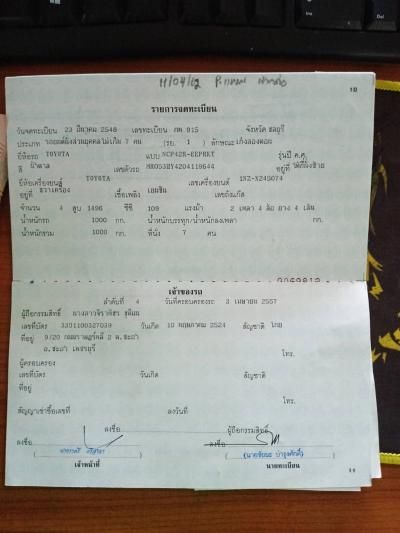 11/04/62
18
รายการจดทะเบียน
วันจดทะเบียน 23 มีนาคม 2548 เลขทะเบียน กพ 915 จังหวัด ชลบุรี
ประเภท รถยนต์นั่งส่วนบุคคลไม่เกิน 7 คน (รย. 1 ) ลักษณะ เก๋งสองตอน
ยี่ห้อรถ TOYOTA แบบ NCP42R-EEPRKT รุ่นปี ค.ศ.
สี น้ำตาล เลขตัวรถ อยู่ที่
ยี่ห้อเครื่องยนต์ TOYOTA เลขเครื่องยนต์ 1NZ-X245074
อยู่ที่ ขวาเครื่อง เชื้อเพลิง เบนซิน เลขถังแก๊ส
จำนวน 4 สูบ 1496 ซีซี 109 แรงม้า 2 เพลา 4 ล้อ ยาง 4 เส้น
น้ำหนักรถ 1000 กก. น้ำหนักบรรทุก/น้ำหนักลงเพลา กก.
น้ำหนักรวม 1000 กก. ที่นั่ง 7 คน
เจ้าของรถ
ลำดับที่ 4 วันที่ครอบครองรถ 3 เมษายน 2557
ผู้ถือกรรมสิทธิ์
เลขที่บัตร 3301100327039 วันเกิด 10 พฤษภาคม 2524 สัญชาติ ไทย
ที่อยู่ 9/20 2 ต.ชะอำ
อ.ชะอำ เพชรบุรี โทร.
ผู้ครอบครอง
เลขที่บัตร วันเกิด สัญชาติ
ที่อยู่
โทร.
สัญญาเช่าซื้อเลขที่ ลงวันที่
ลงชื่อ ผู้ถือกรรมสิทธิ์
ลงชื่อ ลงชื่อ
เจ้าหน้าที่ นายทะเบียน